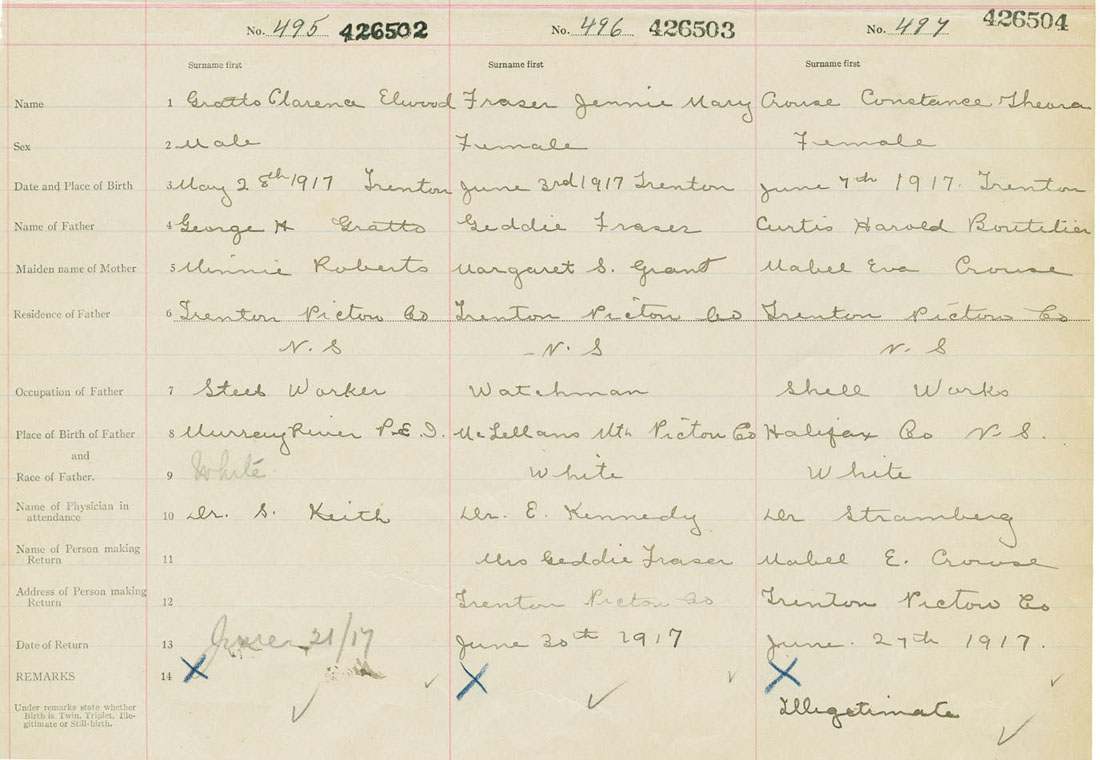 No. 495 426502 No. 496 426503 No. 497 426504
Surname first Surname first Surname first
Name 1 Gratto Clarence Elwood Fraser Jennie Mary Crouse Constance Theora
Sex 2 Male Female Female
Date and Place of Birth 3 May 28th 1917 Trenton June 3rd 1917 Trenton June 7th 1917. Trenton
Name of Father 4 George H Gratto Geddie Fraser Curtis Harold Boutelier
Maiden name of Mother 5 Minnie Roberts Margaret S. Grant Mabel Eva Crouse
Residence of Father 6 Trenton Pictou Co Trenton Pictou Co Trenton Pictou Co
N. S N. S N. S
Occupation of Father 7 Steel Worker Watchman Shell Works
Place of Birth of Father 8 Murray River P.E.I. McLellans Mtn Pictou Co Halifax Co N. S.
and
Race of Father. 9 White White White
Name of Physician in
attendance 10 Dr. S. Keith Dr. E. Kennedy Dr Stramberg
Name of Person making
Return 11 Mrs Geddie Fraser Mabel E. Crouse
Address of Person making
Return 12 Trenton Pictou Co Trenton Pictou Co
Date of Return 13 June 21/17 June 30th 1917 June. 27th 1917.
REMARKS 14
Under remarks state whether
Birth is Twin, Triplet, Ille-
gitimate or Still-birth.
Illegetimate